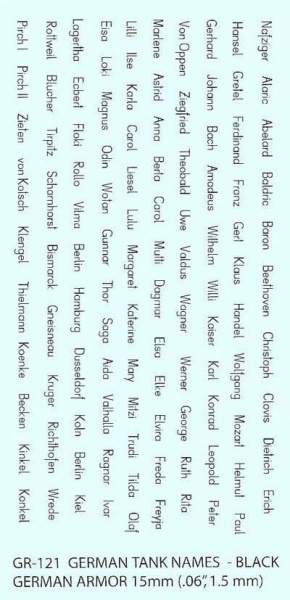 Nafziger Alaric Abelard Baldric Baron Beethoven Christoph Clovis Dietrich Erich
Hansel Gretel Ferdinand Franz Gert Klaus Handel Wolfgang Mozart Helmut Paul
Gerhard Johann Bach Amadeus Wilhelm Willi Kaiser Karl Konrad Leopold Peter
Von Oppen Ziegfried Theobald Uwe Valdus Wagner Werner George Ruth Rita
Marlene Astrid Anna Berta Carol Multi Dagmar Elsa Elke Elvira Freda Freyja
Lilli Ilse Karla Carol Liesel Lulu Margaret Katerine Mary Mitzi Trudi Tilda Olaf
Eisa Loki Magnus Odin Wotan Gunnar Thor Saga Aida Valhalla Ragnar Ivar
Lagertha Ecbert Floki Rollo Vilma Berlin Hamburg Dusseldorf Koln Berlin Kiel
Rottweil Blucher Tirpitz Scharnhorst Bismarck Gneisneau Kruger Richthofen Wrede
Pirch I Pirch II Zieten von Kolsch Klengel Thielmann Koenke Becken Kinkel Konkel
GR-121 GERMAN TANK NAMES - BLACK
GERMAN ARMOR 15mm (.06", 1.5 mm)